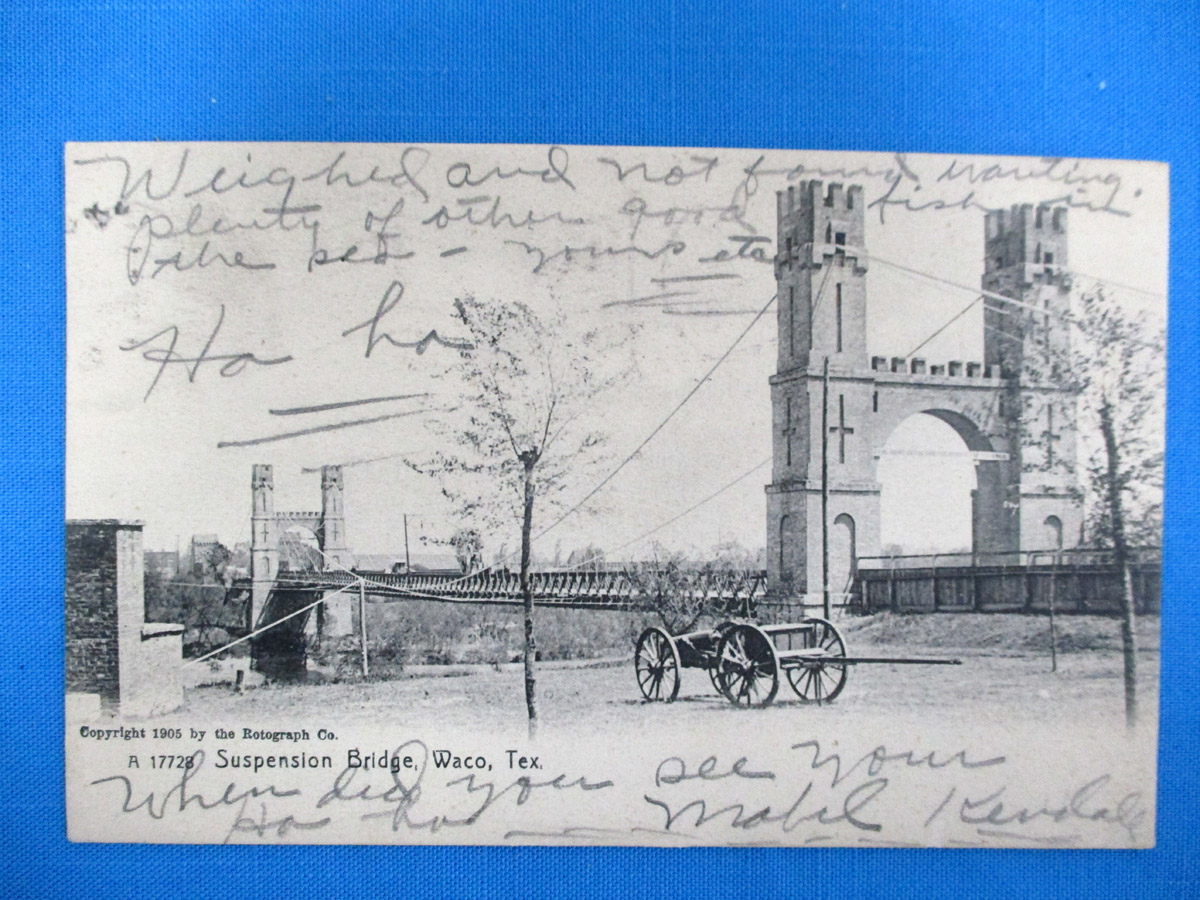 Weighed and not found wanting.
plenty of other good fish in
the sea - yours etc
Ho ha
Copyright 1905 by the Rotograph Co.
A 17728 Suspension Bridge, Waco, Tex.
When did you see your
Ha ha Mabel Kendale